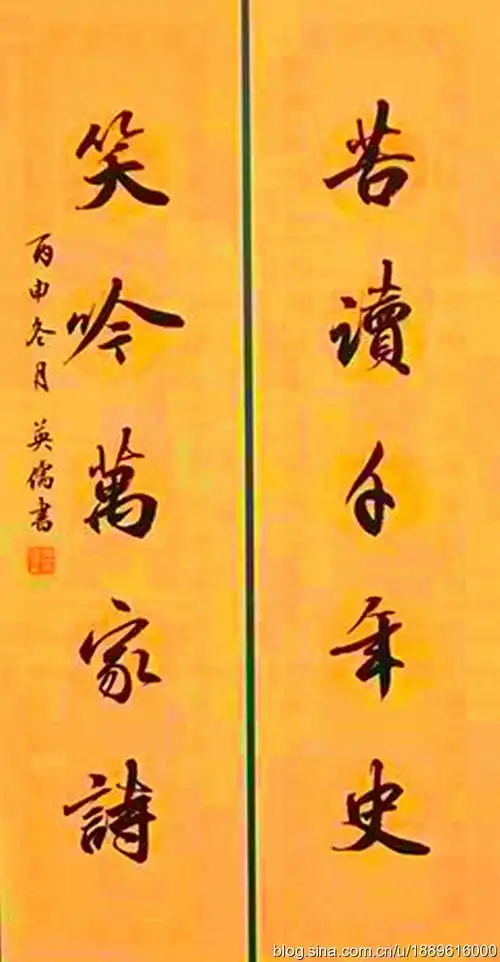 苦讀千年史
笑吟萬家詩
丙申冬月 英儒書
blog.sina.com.cn/u/1889616000